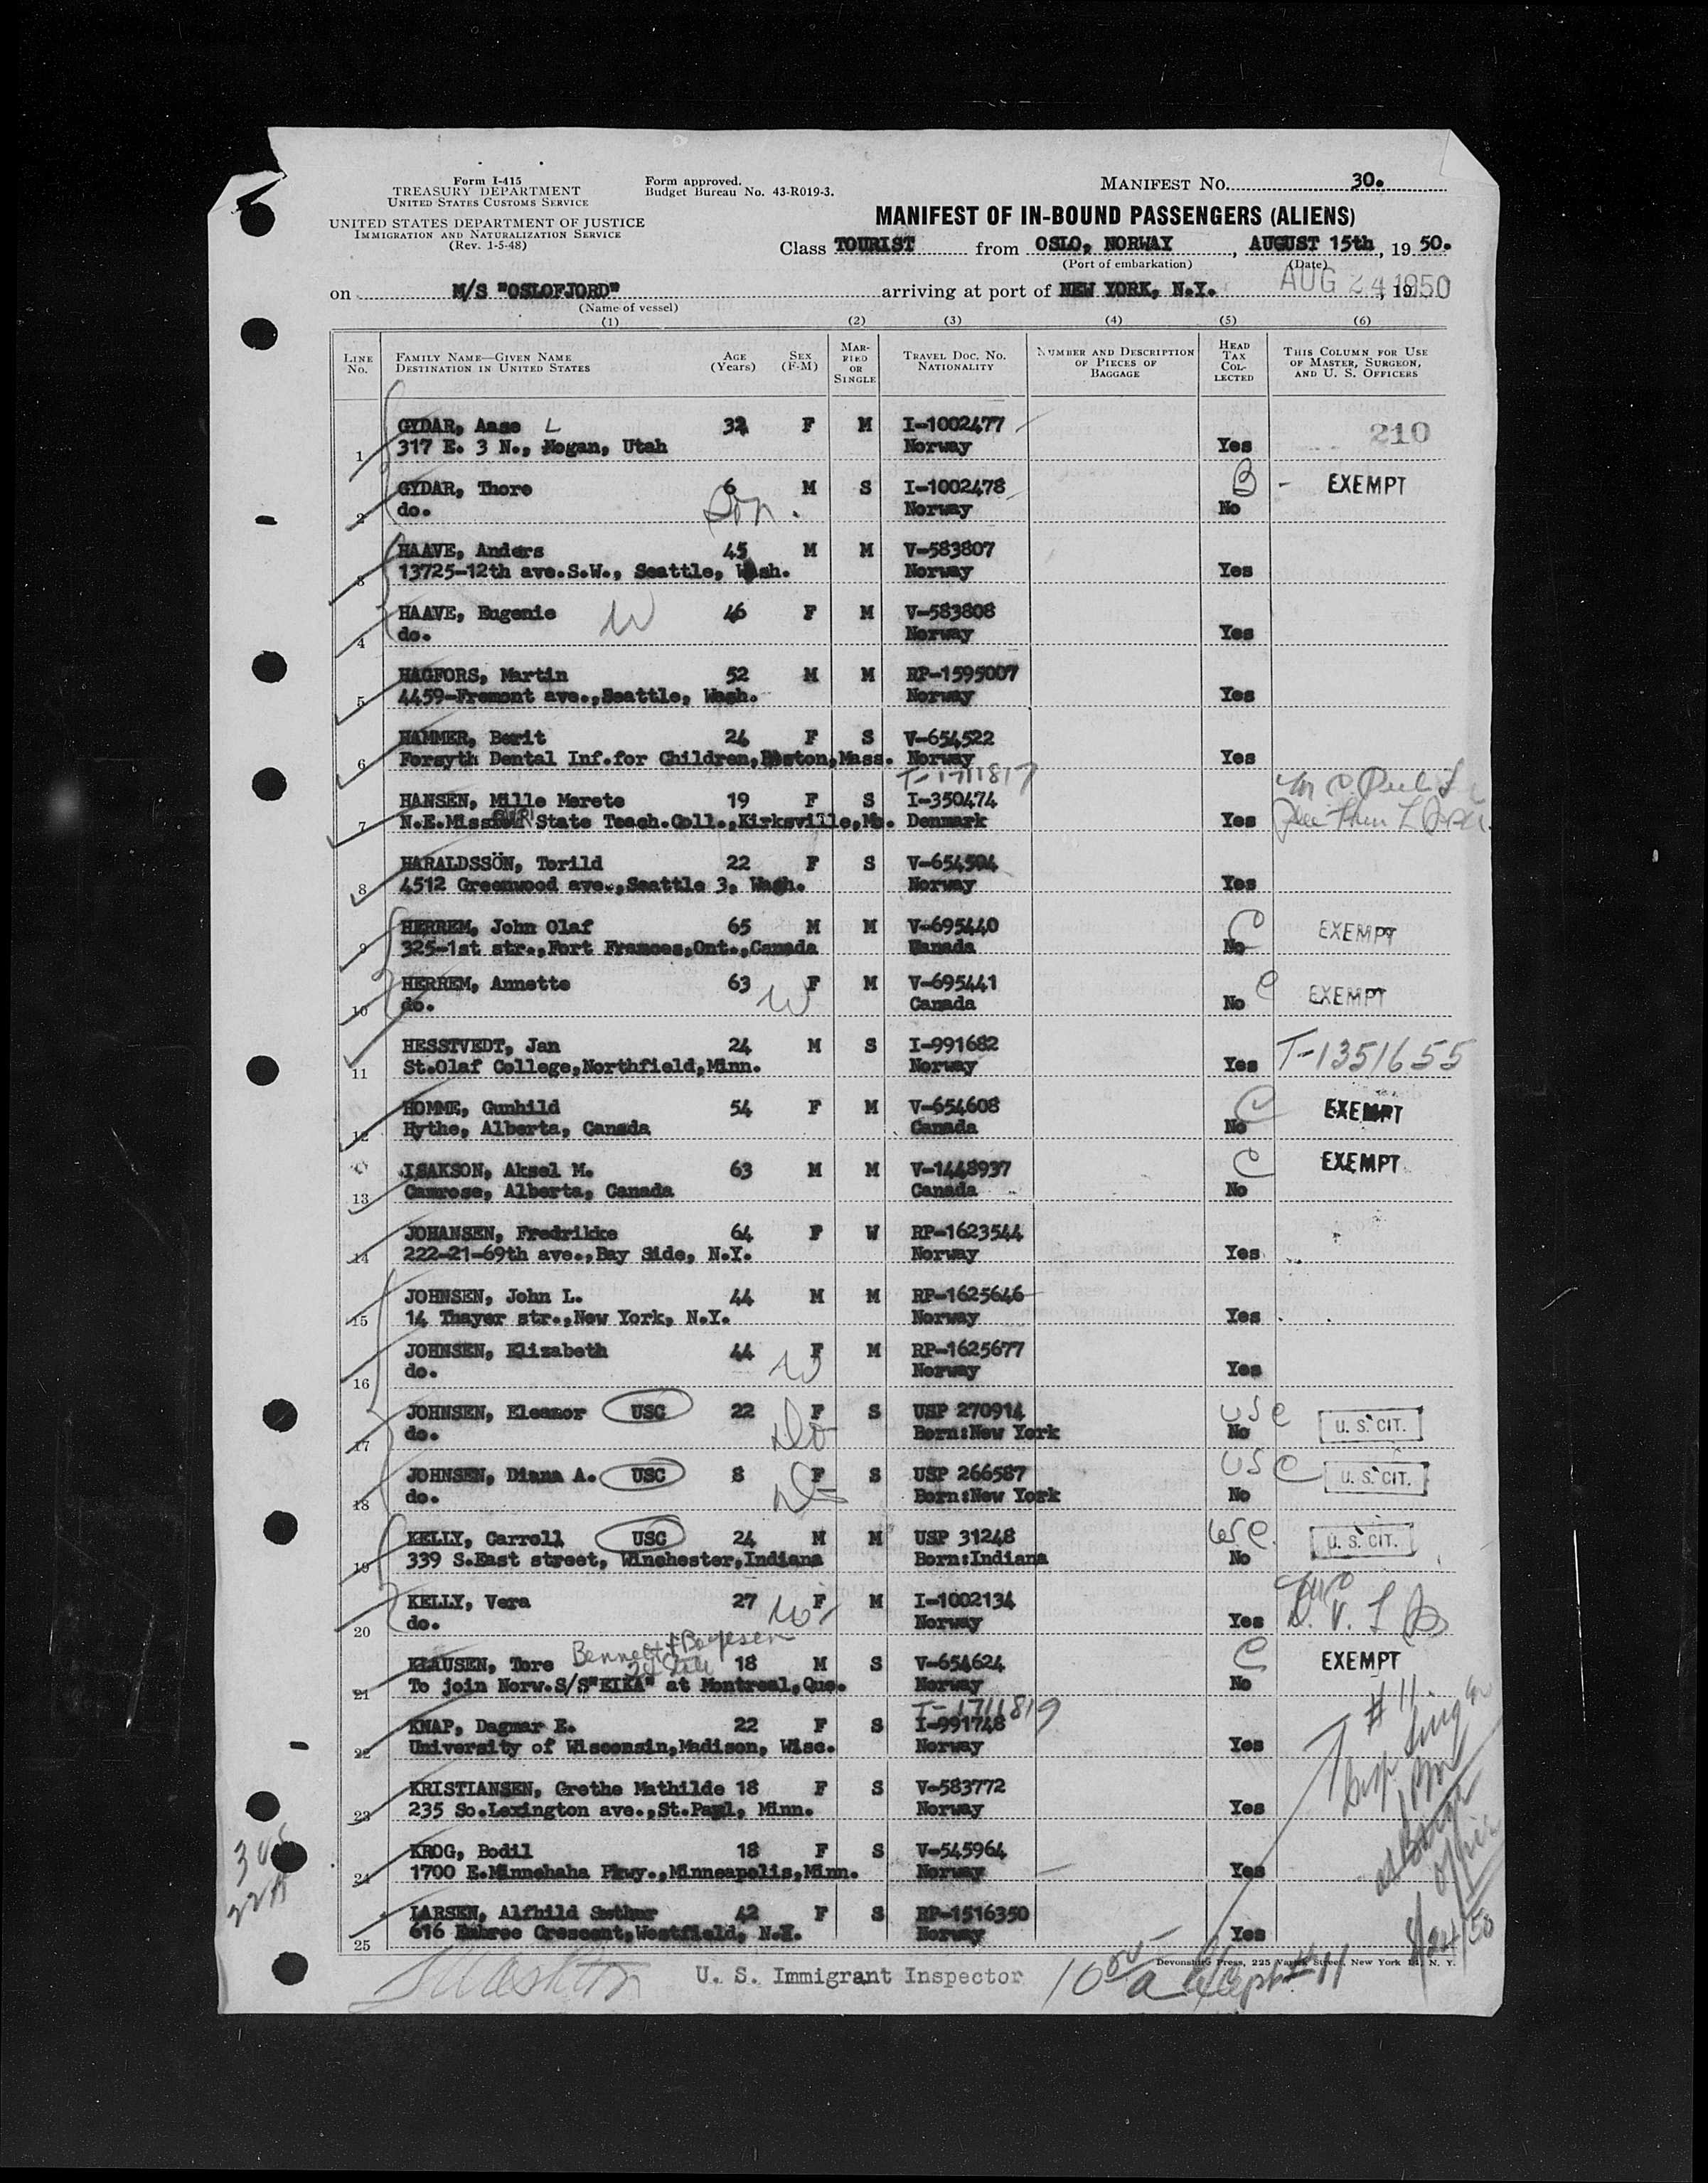 Form I-415
TREASURY DEPARTMENT
UNITED STATES CUSTOMS SERVICE
UNITED STATES DEPARTMENT OF JUSTICE
IMMIGRATION AND NATURALIZATION SERVICE
(Rev. 1-5-48)
Form approved.
Budget Bureau No. 43-R019-3.
MANIFEST NO. 30.
MANIFEST OF IN-BOUND PASSENGERS (ALIENS)
Class TOURIST from OSLO, NORWAY, AUGUST 15th, 19 50.
(Port of embarkation) (Date)
on M/S "OSLOFJORD" arriving at port of NEW YORK, N.Y. AUG 24 1950, 19
(Name of vessel)
(1) (2) (3) (4) (5) (6)
LINE NO. FAMILY NAME—GIVEN NAME DESTINATION IN UNITED STATES AGE (Years) SEX (F-M) MARRIED OR SINGLE TRAVEL DOC. NO. NATIONALITY NUMBER AND DESCRIPTION OF PIECES OF BAGGAGE HEAD TAX COLLECTED THIS COLUMN FOR USE OF MASTER, SURGEON, AND U. S. OFFICERS
GYDAR, Aase L 32 F M I-1002477 210
1 317 E. 3 N., Nogan, Utah Norway Yes
GYDAR, Thore 6 M S I-1002478 B - EXEMPT
2 do. Son. Norway No
HAAVE, Anders 45 M M V-583807
3 13725-12th ave.S.W., Seattle, Wash. Norway Yes
HAAVE, Eugenie W 46 F M V-583808
4 do. Norway Yes
HAGFORS, Martin 52 M M RP-1595007
5 4459-Fremont ave.,Seattle, Wash. Norway Yes
HAMMER, Berit 24 F S V-654522
6 Forsyth Dental Inf.for Children,Boston,Mass. Norway Yes
T-1711817
HANSEN, Mille Merete 19 F S I-350474
7 N.E.Missouri State Teach.Coll.,Kirksville,Mo. Denmark Yes
HARALDSSÖN, Torild 22 F S V-654504
8 4512 Greenwood ave.,Seattle 3, Wash. Norway Yes
HERREM, John Olaf 65 M M V-695440 C EXEMPT
9 325-1st str.,Fort Frances,Ont.,Canada Canada No
HERREM, Annette 63 W F M V-695441 C EXEMPT
10 do. Canada No
HESSTVEDT, Jan 24 M S I-991682 T-1351655
11 St.Olaf College,Northfield,Minn. Norway Yes
HOMME, Gunhild 54 F M V-654608 C EXEMPT
12 Hythe, Alberta, Canada Canada No
ISAKSON, Aksel M. 63 M M V-1448937 C EXEMPT
13 Camrose, Alberta, Canada Canada No
JOHANSEN, Fredrikke 64 F W RP-1623544
14 222-21-69th ave.,Bay Side, N.Y. Norway Yes
JOHNSEN, John L. 44 M M RP-1625646
15 14 Thayer str.,New York, N.Y. Norway Yes
JOHNSEN, Elizabeth 44 W F M RP-1625677
16 do. Norway Yes
JOHNSEN, Eleanor USC 22 F S USP 270914 USC U. S. CIT.
17 do. Do Born:New York No
JOHNSEN, Diana A. USC 8 F S USP 266587 USC U. S. CIT.
18 do. Do Born:New York No
KELLY, Carroll USC 24 M M USP 31248 USC. U. S. CIT.
19 339 S.East street, Winchester,Indiana Born:Indiana No
KELLY, Vera 27 Wo F M I-1002134
20 do. Norway Yes
Bennett & Boyesen
KLAUSEN, Tore 18 M S V-654624 C EXEMPT
21 To join Norw.S/S"EIKA" at Montreal,Que. Norway No
T-1711819
KNAP, Dagmar E. 22 F S I-991748
22 University of Wisconsin,Madison, Wisc. Norway Yes
KRISTIANSEN, Grethe Mathilde 18 F S V-583772
23 235 So.Lexington ave.,St.Paul, Minn. Norway Yes
KROG, Bodil 18 F S V-545964
24 1700 E.Minnehaha Pkwy.,Minneapolis,Minn. Norway Yes
LARSEN, Alfhild 42 F S RP-1516350
25 616 Embree Crescent,Westfield, N.J. Norway Yes
# 11.
8/24/50
U. S. Immigrant Inspector
Devonshire Press, 225 Varick Street, New York 14, N. Y.